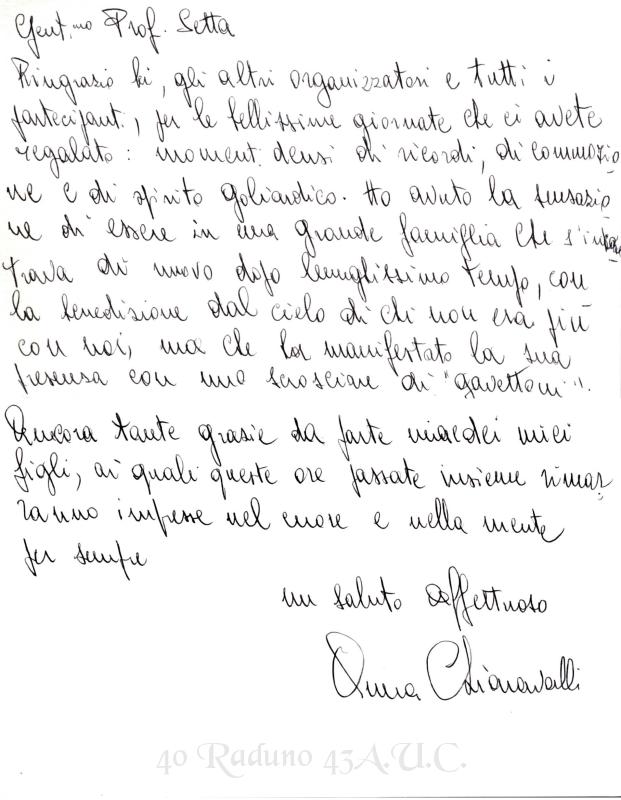 Gent.mo Prof. Setta
Ringrazio Lei, gli altri organizzatori e tutti i
partecipanti, per le bellissime giornate che ci avete
regalato: momenti densi di ricordi, di commozio
ne e di spirito goliardico. Ho avuto la sensazio
ne di essere in una grande famiglia che s'incon
trava di nuovo dopo lunghissimo tempo, con
la benedizione dal cielo di chi non era più
con noi, ma che ha manifestato la sua
presenza con uno scrosciare di "gavettoni".
Ancora tante grazie da parte mia e dei miei
figli, ai quali queste ore passate insieme rimar
ranno impresse nel cuore e nella mente
per sempre
un saluto affettuoso
Anna Chiaravalli
4o Raduno 43A.U.C.